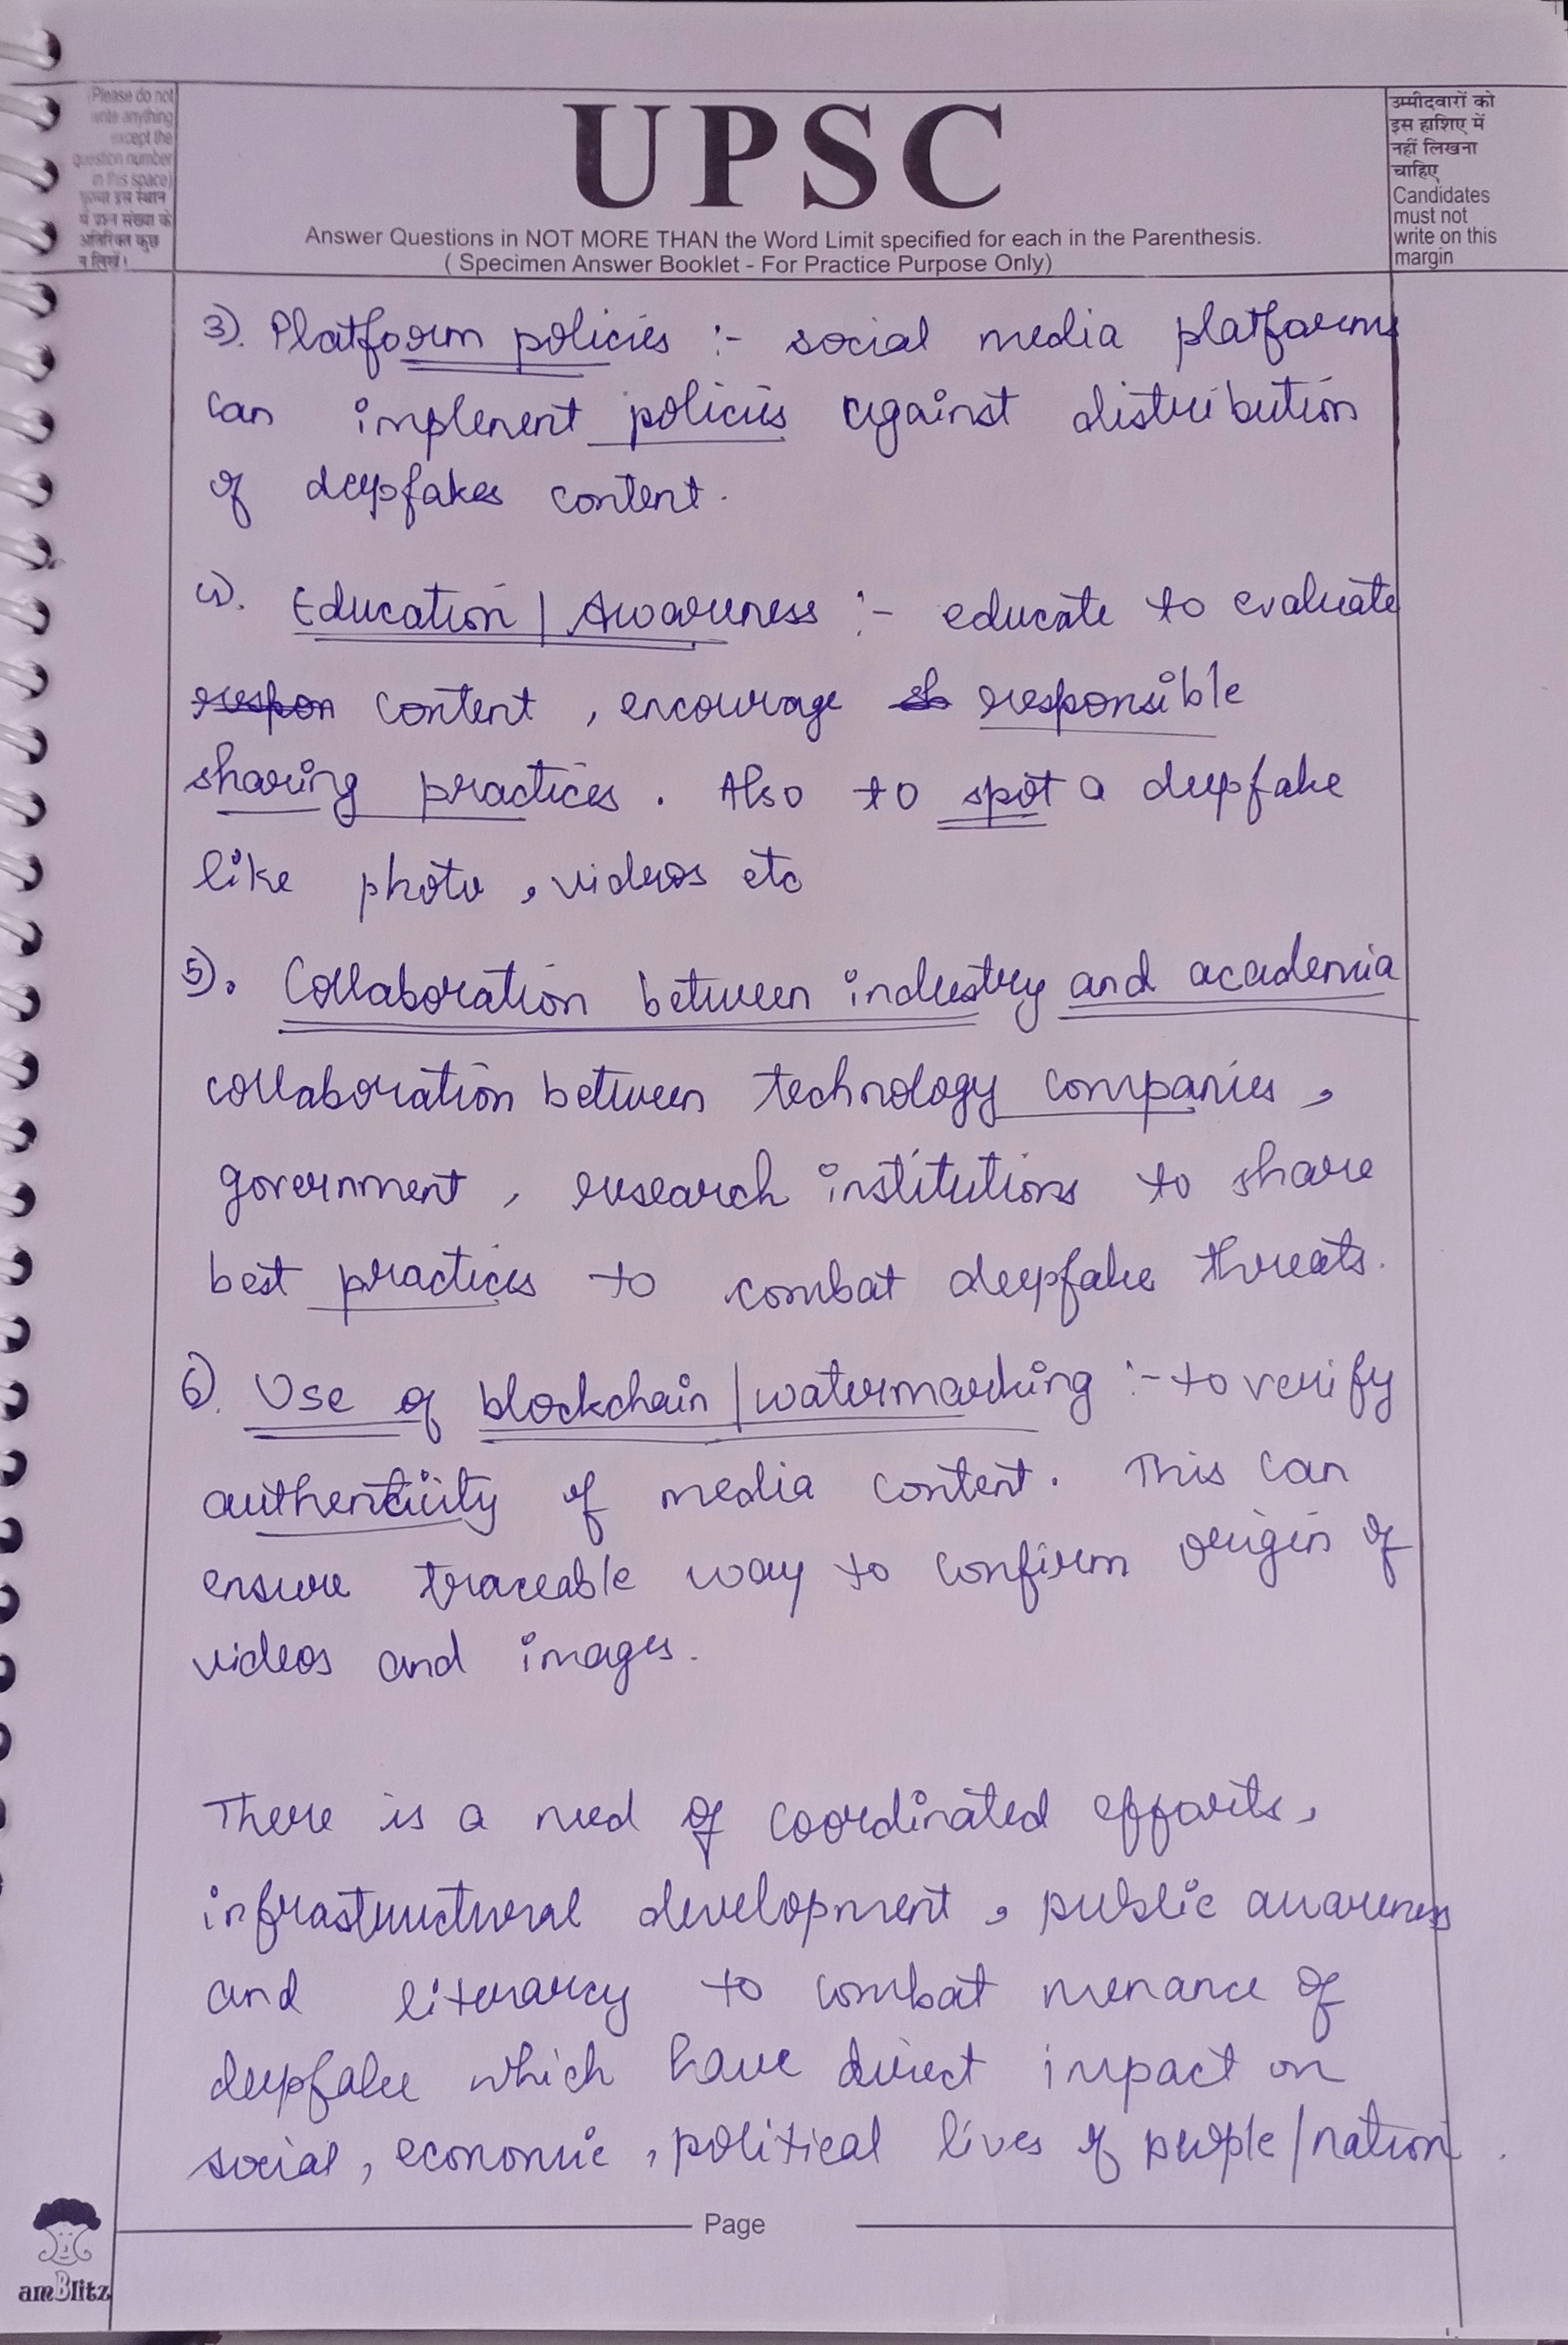 (Please do not
write anything
except the
question number
in this space)
कृपया इस स्थान
में प्रश्न संख्या के
अतिरिक्त कुछ
न लिखें।
UPSC
Answer Questions in NOT MORE THAN the Word Limit specified for each in the Parenthesis.
( Specimen Answer Booklet - For Practice Purpose Only)
उम्मीदवारों को
इस हाशिए में
नहीं लिखना
चाहिए
Candidates
must not
write on this
margin
3). Platform policies :- social media platforms
can implement policies against distribution
of deepfakes content.
4). Education / Awareness :- educate to evaluate
respon content, encourage responsible
sharing practices. Also to spot a deepfake
like photo, videos etc
5). Collaboration between industry and academia
collaboration between technology companies,
government, research institutions to share
best practices to combat deepfake threats.
6). Use of blockchain / watermarking :- to verify
authenticity of media content. This can
ensure traceable way to confirm origin of
videos and images.
There is a need of coordinated efforts,
infrastructural development, public awareness
and literarcy to combat menance of
deepfake which have direct impact on
social, economic, political lives of people/nation.
Page
amBlitz